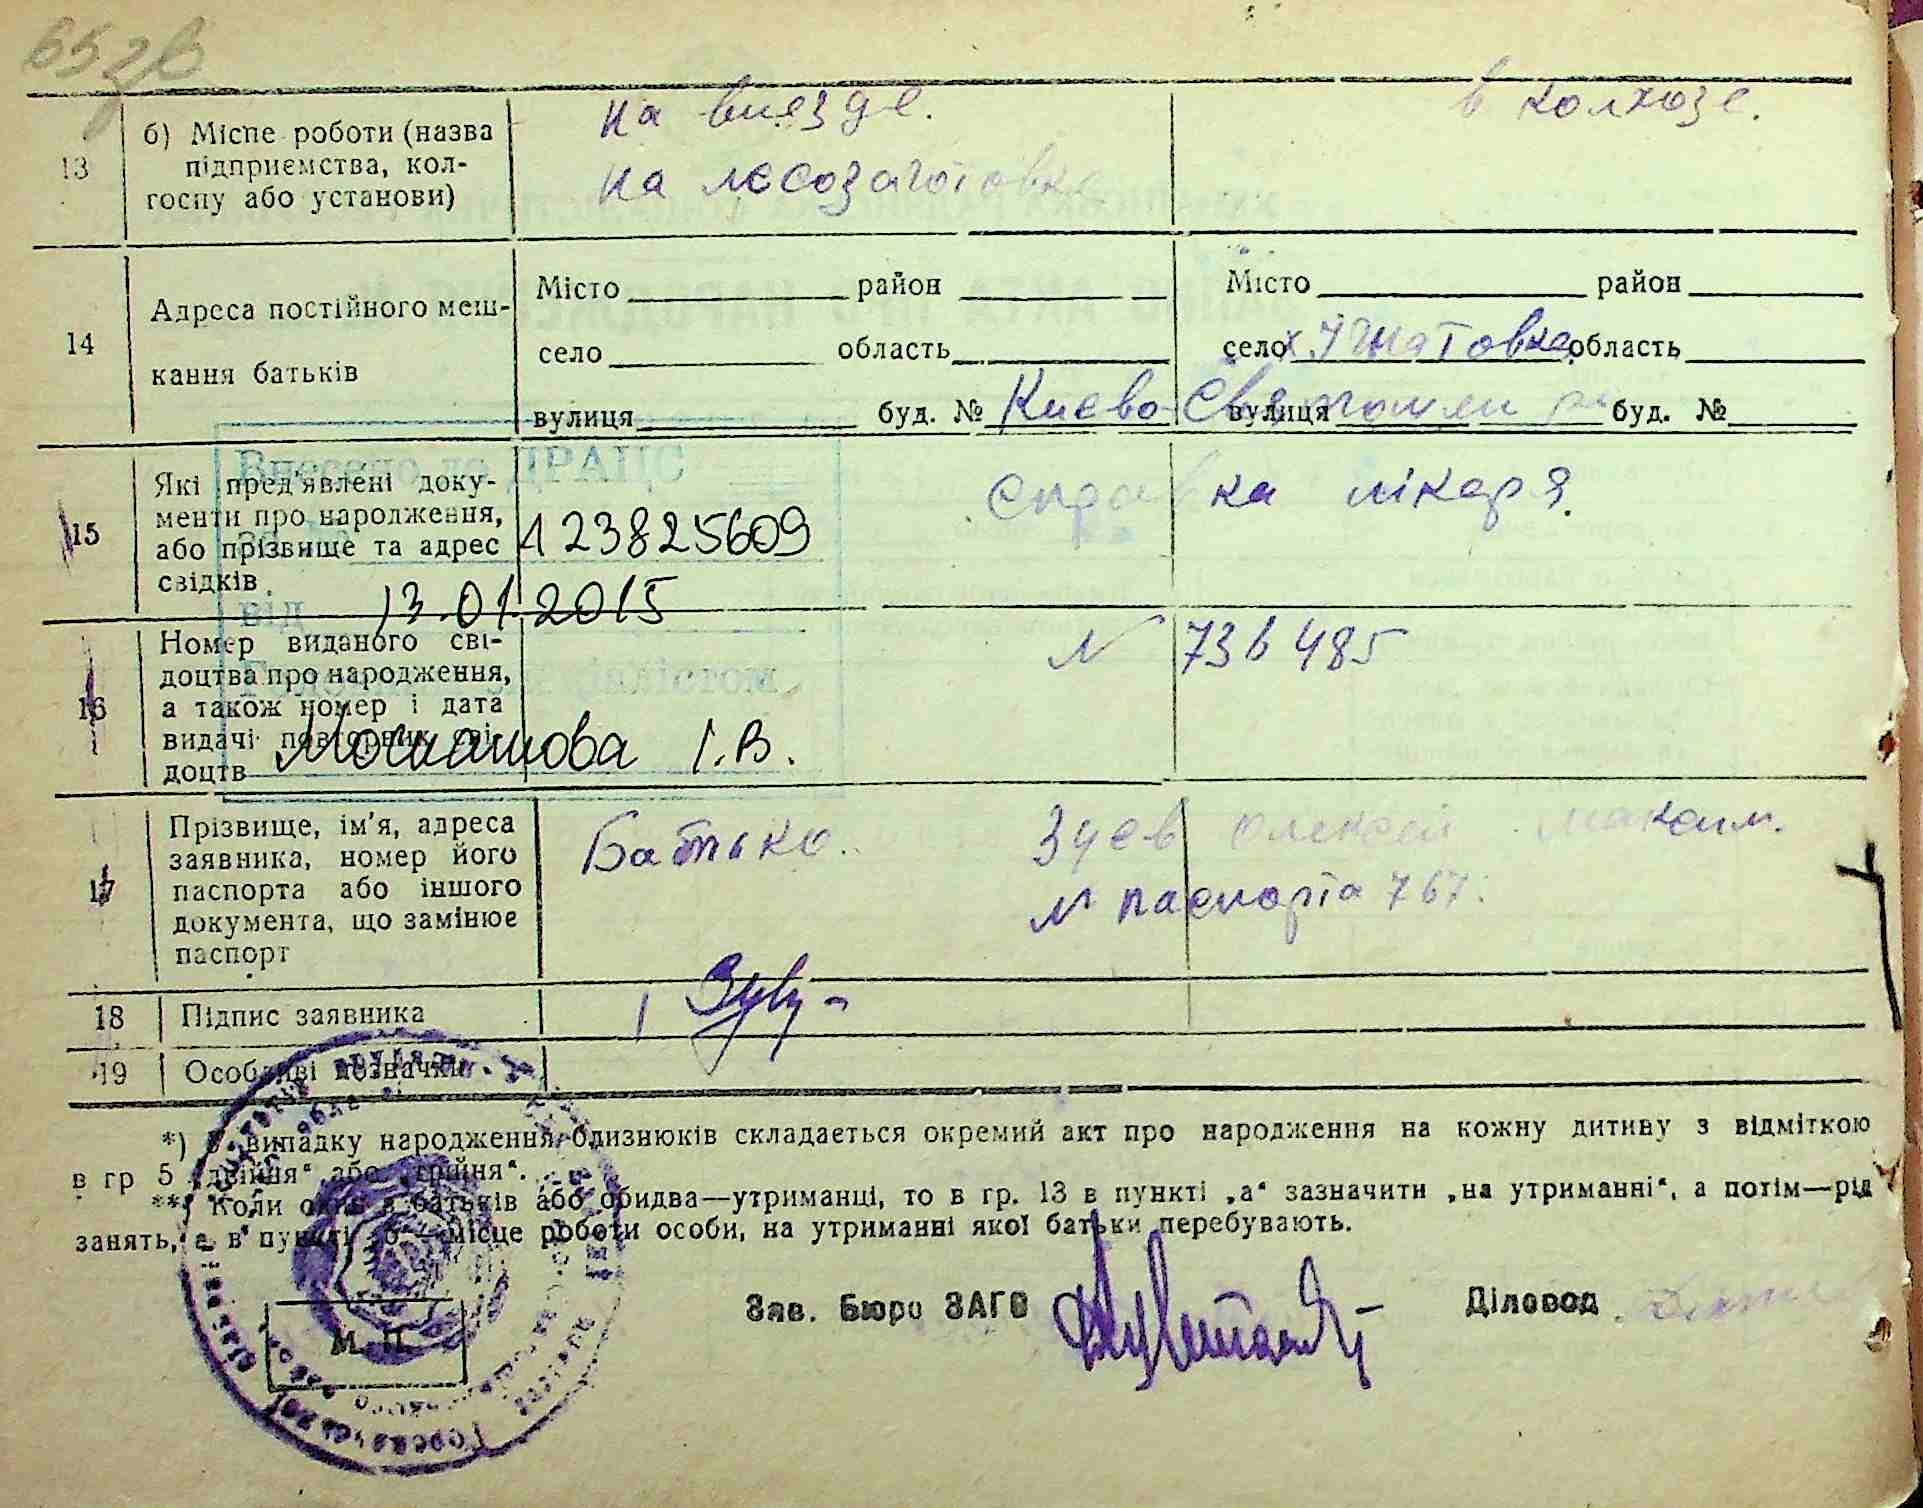 65зв
13 б) Місце роботи (назва підприємства, колгоспу або установи)
на виезде.
на лєсозаготовка
в колхозе.
14 Адреса постійного мешкання батьків
Місто район
село область
вулиця буд. №
Місто район
село х. Ігнатовка область
вулиця буд. №
Києво-Святошин
15 Які пред'явлені документи про народження, або прізвище та адрес свідків.
Справка лікаря.
Внесено до ДРАЦС
123825609
від 13.01.2015
16 Номер виданого свідоцтва про народження, а також номер і дата видачі повторних свідоцтв
N 736485
І.В.
17 Прізвище, ім'я, адреса заявника, номер його паспорта або іншого документа, що замінює паспорт
Батько. Зуєв Олексей Максим.
N паспорта 767.
18 Підпис заявника
19 Особливі позначки
*) У випадку народження близнюків складається окремий акт про народження на кожну дитину з відміткою
в гр 5 „двійня“ або „трійня“.
**) Коли один з батьків або обидва—утриманці, то в гр. 13 в пункті „а“ зазначити „на утриманні“, а потім—рід
занять, а в пункті „б“—місце роботи особи, на утриманні якої батьки перебувають.
Зав. Бюро ЗАГС
Діловод
М. П.